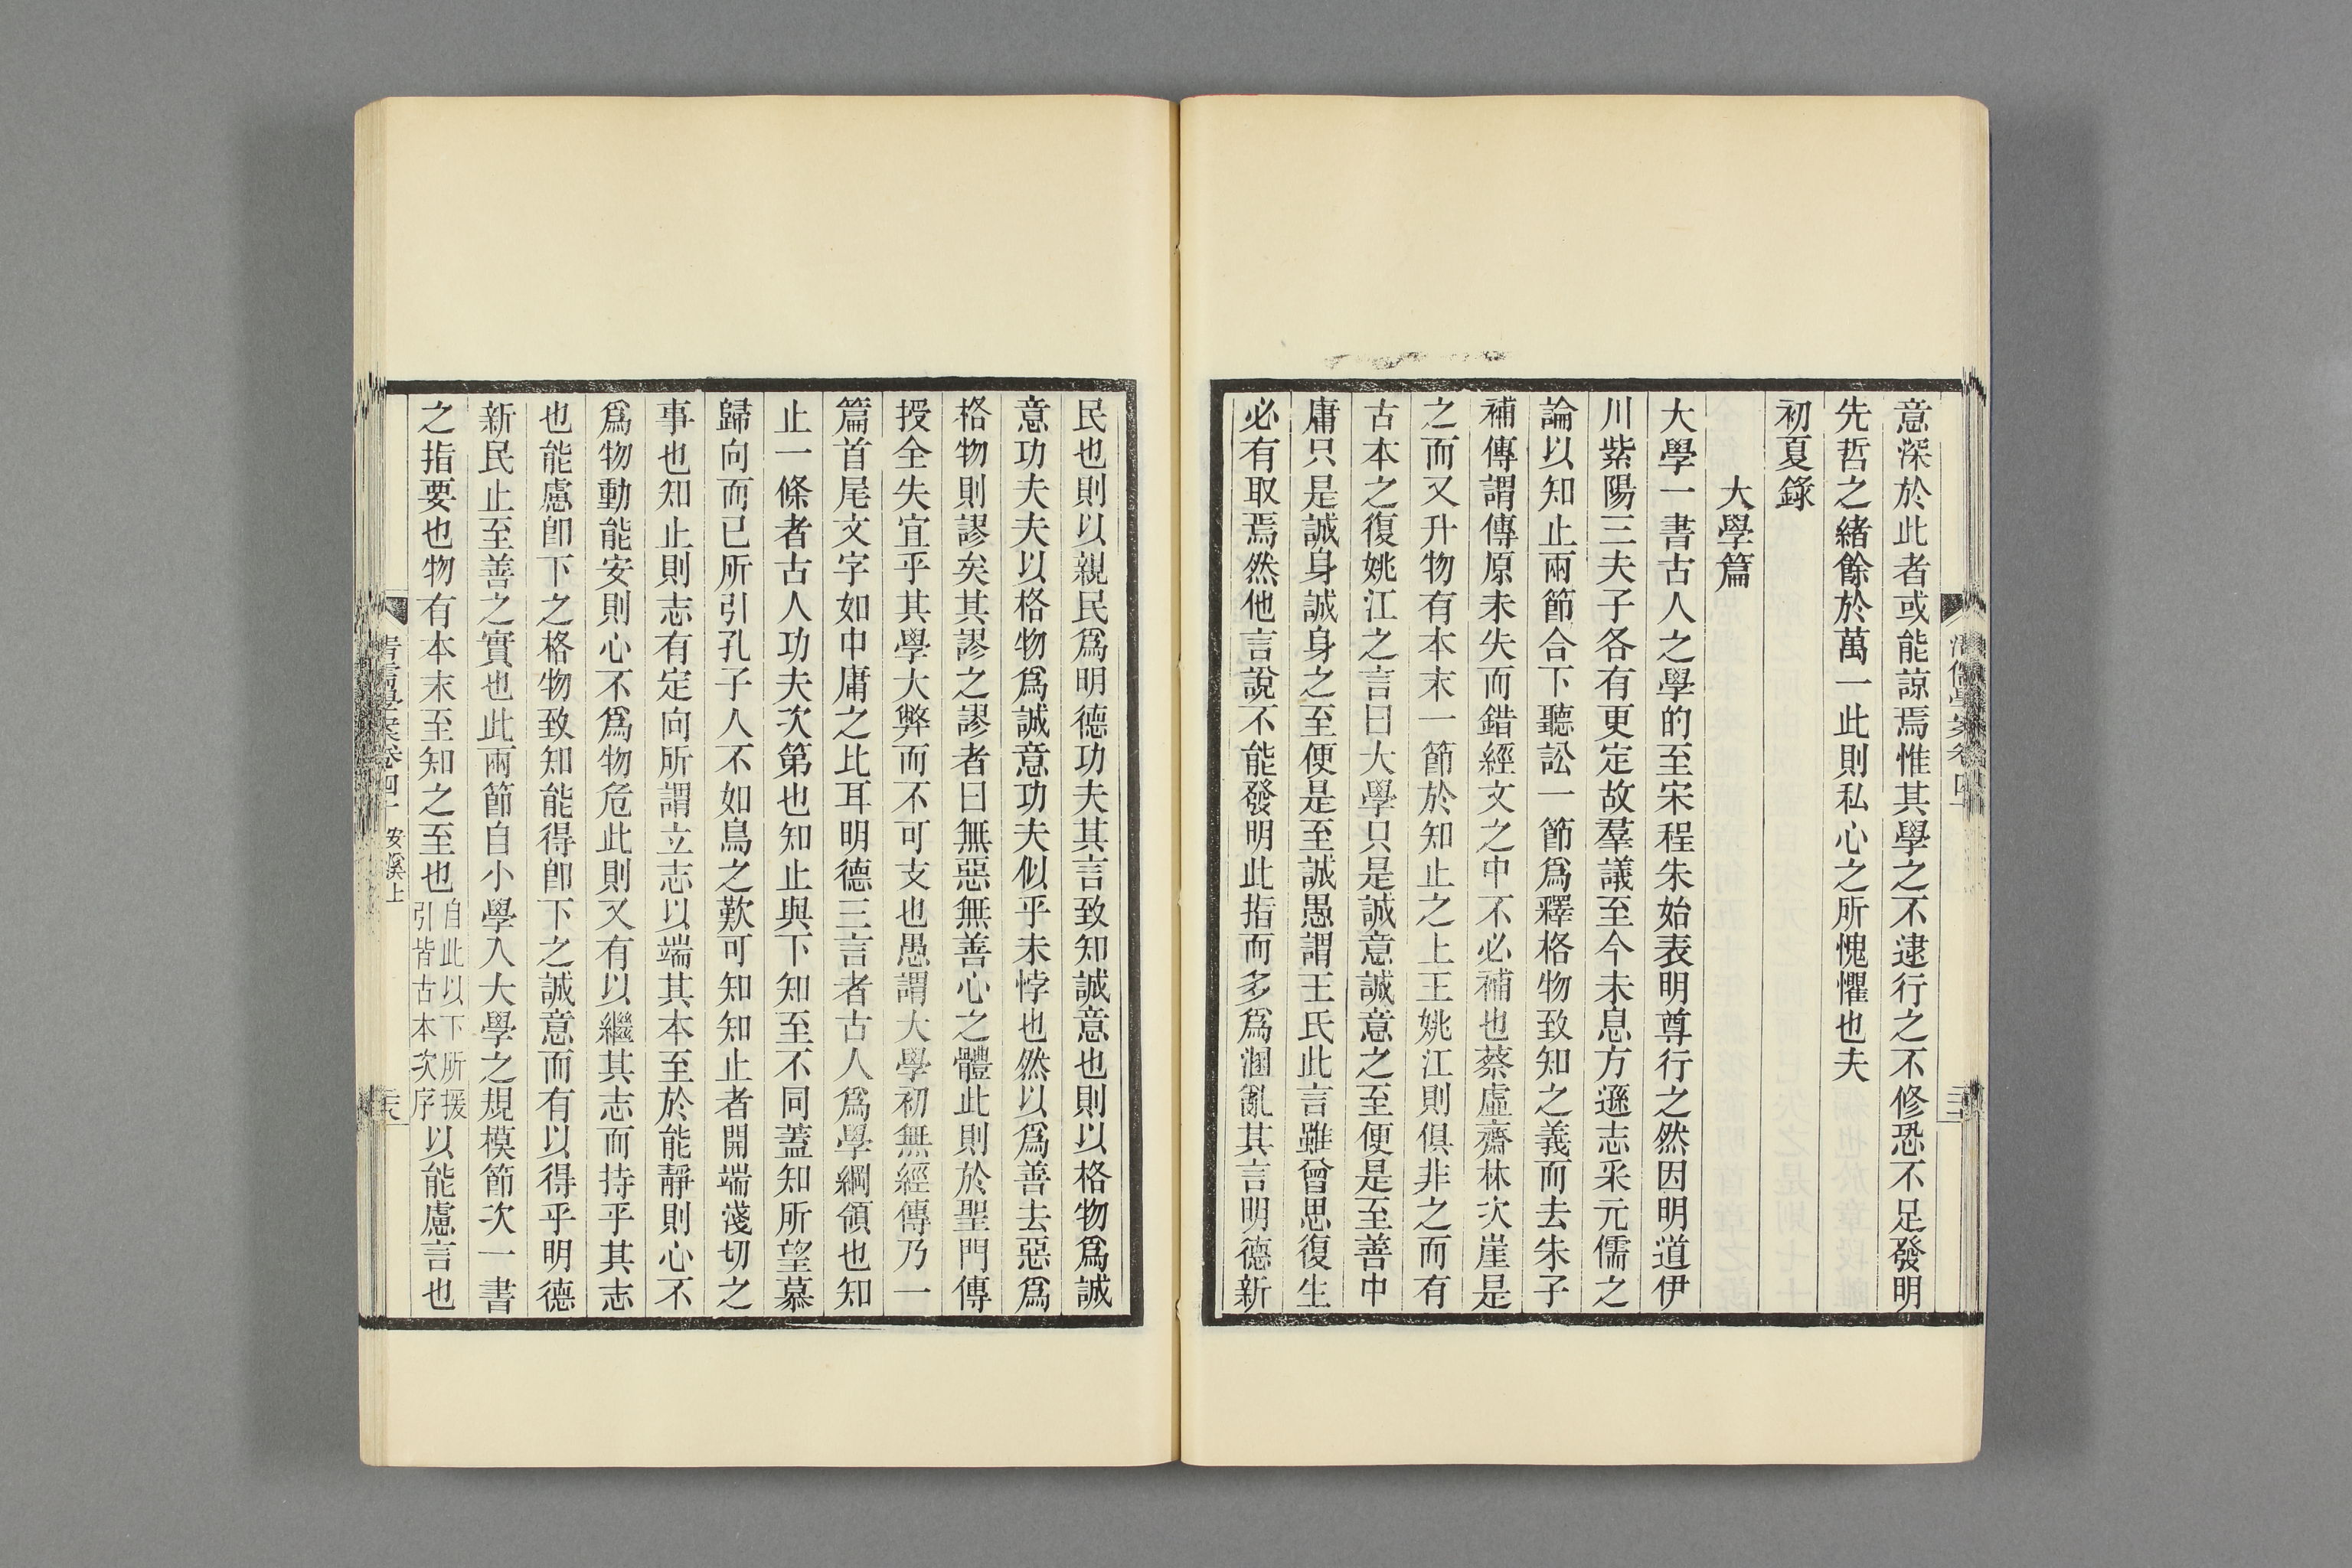 意深於此者或能諒焉惟其學之不逮行之不修恐不足發明
先哲之緒餘於萬一此則私心之所愧懼也夫
初夏錄
大學篇
大學一書古人之學的至宋程朱始表明尊行之然因明道伊
川紫陽三夫子各有更定故羣議至今未息方遜志采元儒之
論以知止兩節合下聽訟一節爲釋格物致知之義而去朱子
補傳謂傳原未失而錯經文之中不必補也蔡虛齋林次崖是
之而又升物有本末一節於知止之上王姚江則俱非之而有
古本之復姚江之言曰大學只是誠意誠意之至便是至善中
庸只是誠身誠身之至便是至誠愚謂王氏此言雖曾思復生
必有取焉然他言說不能發明此指而多爲溷亂其言明德新
民也則以親民爲明德功夫其言致知誠意也則以格物爲誠
意功夫夫以格物爲誠意功夫似乎未悖也然以爲善去惡爲
格物則謬矣其謬之謬者曰無惡無善心之體此則於聖門傳
授全失宜乎其學大弊而不可支也愚謂大學初無經傳乃一
篇首尾文字如中庸之比耳明德三言者古人爲學綱領也知
止一條者古人功夫次第也知止與下知至不同蓋知所望慕
歸向而已所引孔子人不如鳥之歎可知知止者開端淺切之
事也知止則志有定向所謂立志以端其本至於能靜則心不
爲物動能安則心不爲物危此則又有以繼其志而持乎其志
也能慮卽下之格物致知能得卽下之誠意而有以得乎明德
新民止至善之實也此兩節自小學入大學之規模節次一書
之指要也物有本末至知之至也自此以下所援引皆古本次序以能慮言也
清儒學案卷四十
安溪上